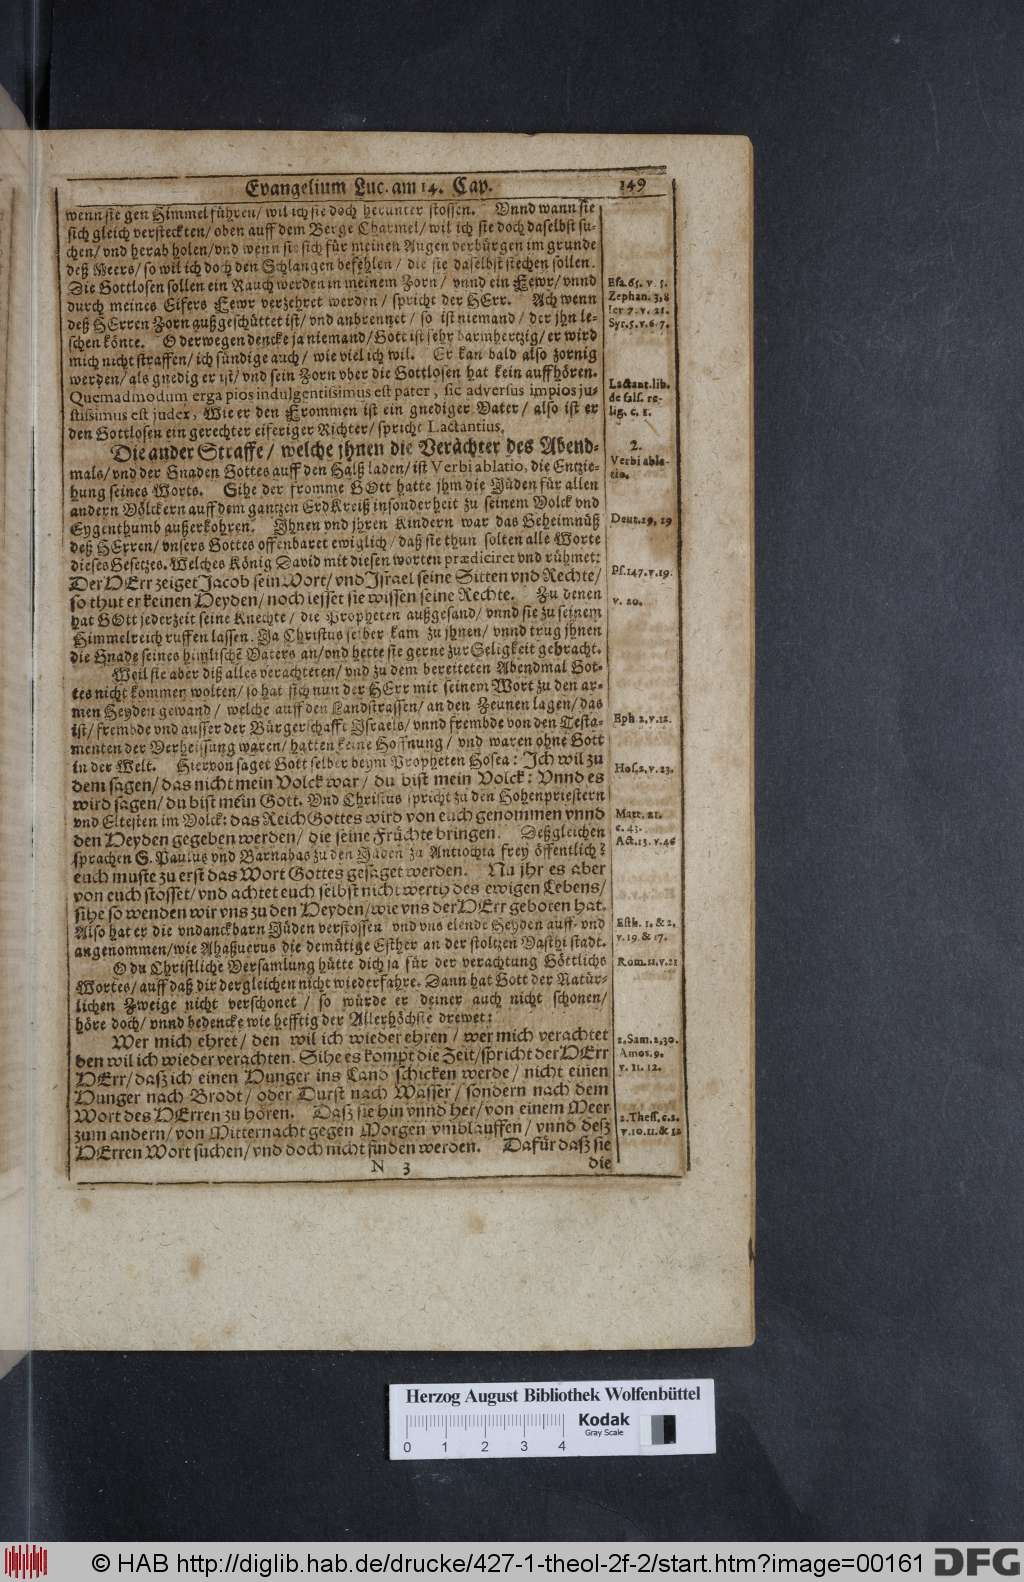 Evangelium Luc. am 14. Cap. 149
wenn sie gen Himmel führen/ wil ich sie doch herunter stossen. Vnnd wann sie
sich gleich versteckten/ oben auff dem Berge Charmel/ wil ich sie doch daselbst su-
chen/ vnd herab holen/ vnd wenn sie sich für meinen Augen verbürgen im grunde
deß Meers/ so wil ich doch den Schlangen befehlen/ die sie daselbst stechen sollen.
Die Gottlosen sollen ein Rauch werden in meinem Zorn/ vnnd ein Fewr/ vnnd
durch meines Eifers Fewr verzehret werden/ spricht der HErr. Ach wenn
deß HErren Zorn außgeschüttet ist/ vnd anbrennet/ so ist niemand/ der jhn le-
schen könte. O derwegen dencke ja niemand/ Gott ist sehr barmhertzig/ er wird
mich nicht straffen/ ich sündige auch/ wie viel ich wil. Er kan bald also zornig
werden/ als gnedig er ist/ vnd sein Zorn vber die Gottlosen hat kein auffhören.
Quemadmodum erga pios indulgentissimus est pater, sic adversus impios ju-
stissimus est judex, Wie er den Frommen ist ein gnediger Vater/ also ist er
den Gottlosen ein gerechter eiferiger Richter/ spricht Lactantius.
Die ander Straffe/ welche jhnen die Verächter des Abend-
mals/ vnd der Gnaden Gottes auff den Halß laden/ ist Verbi ablatio, die Entzie-
hung seines Worts. Sihe der fromme GOtt hatte jhm die Jüden für allen
andern Völckern auff dem gantzen ErdKreiß insonderheit zu seinem Volck vnd
Eygenthumb außerkohren. Jhnen vnd jhren Kindern war das Geheimnüß
deß HErren/ vnsers Gottes offenbaret ewiglich/ daß sie thun solten alle Worte
dieses Gesetzes. Welches König David mit diesen worten prædiciret vnd rühmet:
Der HErr zeiget Jacob sein Wort/ vnd Jsrael seine Sitten vnd Rechte/
so thut er keinen Heyden/ noch lesset sie wissen seine Rechte. Zu denen
hat GOtt jederzeit seine Knechte/ die Propheten außgesand/ vnnd sie zu seinem
Himmelreich ruffen lassen. Ja Christus selber kam zu jhnen/ vnnd trug jhnen
die Gnade seines himlischē Vaters an/ vnd hette sie gerne zur Seligkeit gebracht.
Weil sie aber diß alles verachteten/ vnd zu dem bereiteten Abendmal Got-
tes nicht kommen wolten/ so hat sich nun der HErr mit seinem Wort zu den ar-
men Heyden gewand/ welche auff den Landstrassen/ an den Zeunen lagen/ das
ist/ frembde vnd ausser der Bürgerschafft Jsraels/ vnnd frembde von den Testa-
menten der Verheissung waren/ hatten keine Hoffnung/ vnd waren ohne Gott
in der Welt. Hiervon saget Gott selber beym Propheten Hosea: Jch wil zu
dem sagen/ das nicht mein Volck war/ du bist mein Volck: Vnnd es
wird sagen/ du bist mein Gott. Vnd Christus spricht zu den Hohenpriestern
vnd Eltesten im Volck: das Reich Gottes wird von euch genommen vnnd
den Heyden gegeben werden/ die seine Früchte bringen. Deßgleichen
sprachen S. Paulus vnd Barnabas zu den Jüden zu Antiochia frey öffentlich:
euch muste zu erst das Wort Gottes gesaget werden. Na jhr es aber
von euch stosset/ vnd achtet euch selbst nicht werth des ewigen Lebens/
sihe so wenden wir vns zu den Heyden/ wie vns der HErr geboten hat.
Also hat er die vndanckbarn Jüden verstossen vnd vns elende Heyden auff- vnd
angenommen/ wie Ahaßuerus die demütige Esther an der stoltzen Vasthi stadt.
O du Christliche Versamlung hütte dich ja für der verachtung Göttlichs
Wortes/ auff daß dir dergleichen nicht wiederfahre. Dann hat Gott der Natür-
lichen Zweige nicht verschonet/ so würde er deiner auch nicht schonen/
höre doch/ vnnd bedencke wie hefftig der Allerhöchste drewet:
Wer mich ehret/ den wil ich wieder ehren/ wer mich verachtet
den wil ich wieder verachten. Sihe es kompt die Zeit/ spricht der HErr
HErr/ daß ich einen Hunger ins Land schicken werde/ nicht einen
Hunger nach Brodt/ oder Durst nach Wasser/ sondern nach dem
Wort des HErren zu hören. Daß sie hin vnnd her/ von einem Meer
zum andern/ von Mitternacht gegen Morgen vmblauffen/ vnnd deß
HErren Wort suchen/ vnd doch nicht finden werden. Dafür daß sie
N 3 die
Esa. 65. v. 5.
Zephan. 3, 8
Ier 7. v. 21.
Syr. 5. v. 6 7.
Lactant. lib.
de fals. re-
lig. c. 1.
2.
Verbi abla-
tio.
Deut. 29, 29
Ps. 147. v. 19.
v. 20.
Eph 2. v. 12.
Hos. 2. v. 23.
Matt. 21.
c. 43.
Act. 13. v. 46
Esth. 1. & 2.
v. 19. & 17.
Rom. 11. v. 21
1. Sam. 2, 30.
Amos. 9.
v. 11. 12.
2. Thess. c. 2.
v. 10. 11. & 12
Herzog August Bibliothek Wolfenbüttel
0 1 2 3 4
Kodak
Gray Scale
© HAB http://diglib.hab.de/drucke/427-1-theol-2f-2/start.htm?image=00161
DFG